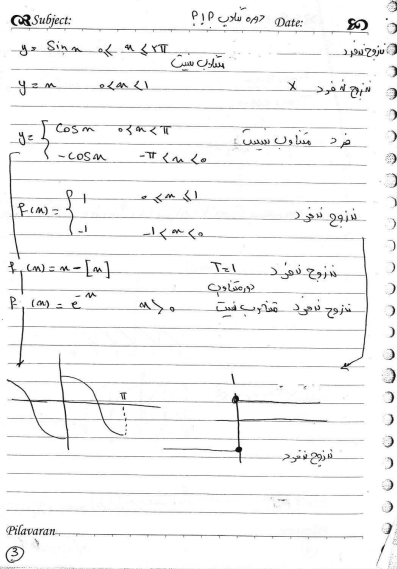 Subject: دوره تناوب P1P Date:
y = Sin x 0 ≤ x ≤ 2π نه زوج نه فرد
متناوب نیست
y = x 0<x<1 x نه زوج نه فرد
y = { Cos x 0<x<π
-Cos x -π<x<0 فرد متناوب نیست:
f(x) = { 1 0≤x≤1
-1 -1<x<0 نه زوج نه فرد
f(x) = x - [x] T=1 نه زوج نه فرد
دوره تناوب
f(x) = e^-x x>0 متناوب نیست نه زوج نه فرد
π
1
نه زوج نه فرد
Pilavaran
3